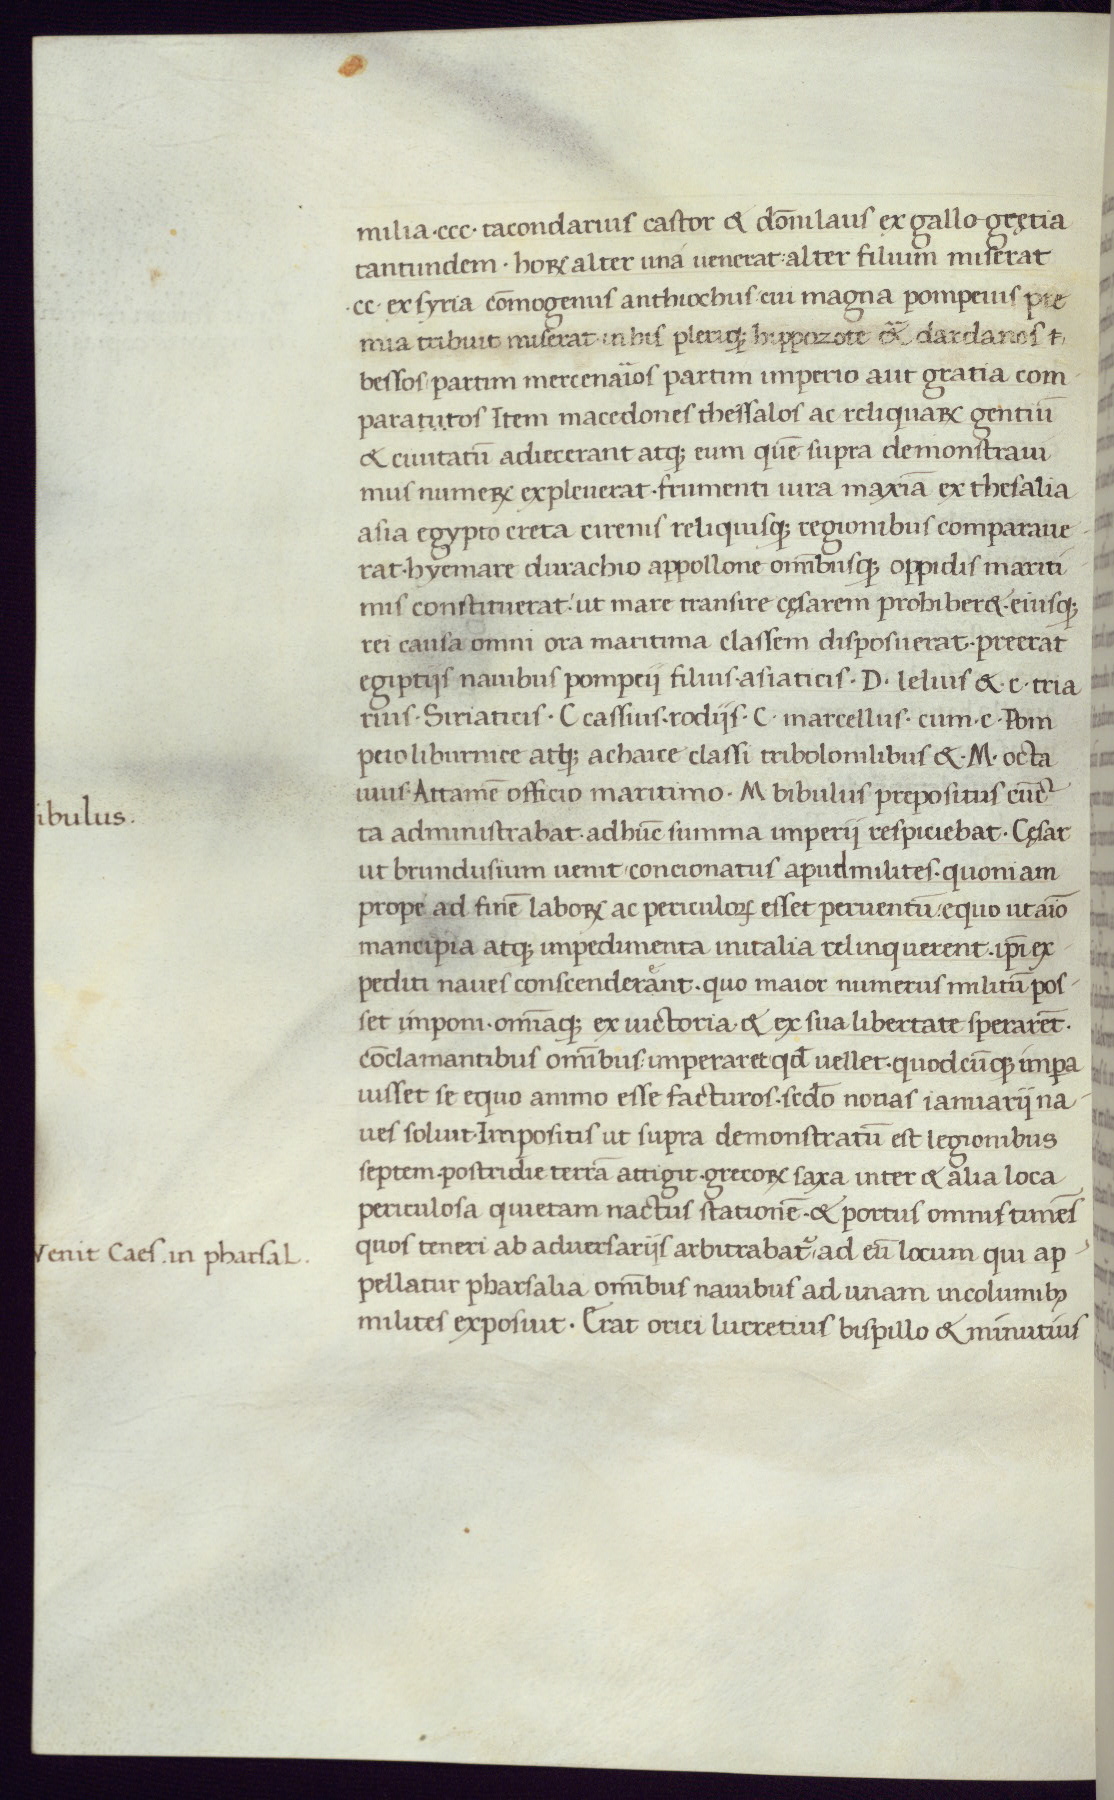 milia ·ccc· tacondarius castor & dōnilaus ex gallo gręcia
tantundem · hoꝝ alter una uenerat: alter filium miserat
·cc· ex syria cōmogenus anthiochus cui magna pompeius pre
mia tribuit miserat in his pleriqꝫ hippozote dardanos
bessos partim mercenarios partim imperio aut gratia com-
paratutos Item macedones thessalos ac reliquaꝝ gentiū
& ciuitatū adiecerant atqꝫ eum quē supra demonstraui
mus numeꝝ expleuerat · frumenti uira maxīa ex thesalia
asia egypto creta cirenis reliquisqꝫ regionibus comparaue-
rat · hyemare durachio appollone om̄ibusqꝫ oppidis mariti-
mis constituerat: ut mare transire cęsarem prohiber& · eiusqꝫ
rei causa omni ora maritima classem disposuerat · preerat
egiptijs nauibus pompeij filius · asiaticis · D · lelius & · c · tria
rius · Siriaticis · C cassius · rodijs · C · marcellus · cum · c · Pom
peio liburnice atqꝫ achaice classi tribolonilibus & · M · octa
uius · Attamē officio maritimo · M bibulus prepositus cūc
ibulus.
ta administrabat · ad hūc summa imperij respiciebat · Cęsar
ut brundusium uenit concionatus apud milites · quoniam
prope ad finē laboꝝ ac periculoꝝ esset peruentū equo ut aīo
mancipia atqꝫ impedimenta in italia relinquerent · ip̄i ex-
pediti naues conscenderent · quo maior numerus militū pos-
set imponi · om̄iaqꝫ ex uictoria · & ex sua libertate sperarēt ·
cōclamantibus om̄ibus imperaret qd̄ uellet · quodcūqꝫ impa
uisset se equo animo esse facturos · secd̄o nonas ianuarij na-
ues soluit · Impositis ut supra demonstratū est legionibus
septem · postridie terrā attigit · grecoꝝ saxa inter & alia loca
periculosa quietam nactus stationē · & portus omnis timēs
quos teneri ab aduersarijs arbitrabat᷑ ad eū locum qui ap-
Venit Caes. in pharsal.
pellatur pharsalia om̄ibus nauibus ad unam incolumibꝫ
milites exposuit · Erat orici lucretius bispillo & minutius